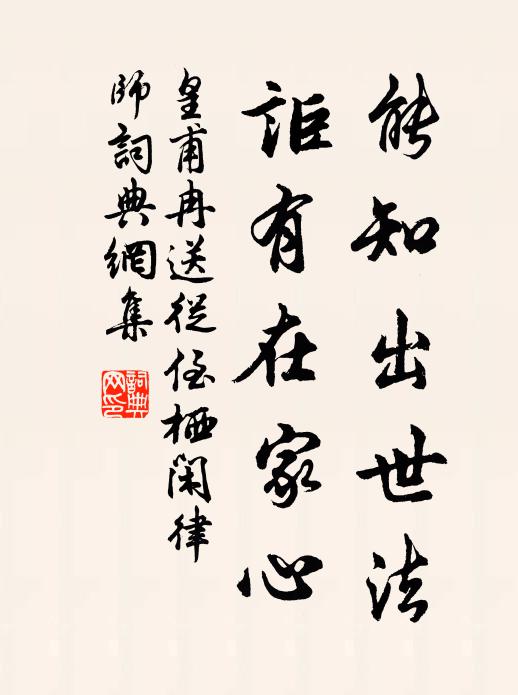 能知出世法
詎有在家心
皇甫冉送從侄栖閑律
師詞典網集
詞典
网印